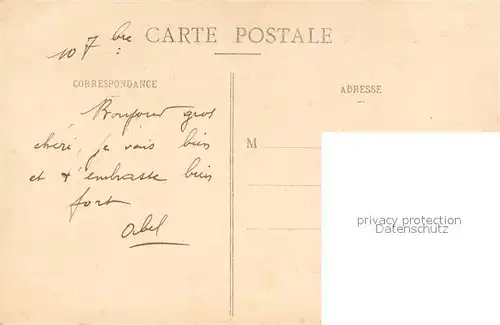 10 7bre
CARTE POSTALE
CORRESPONDANCE
ADRESSE
Bonjour gros
chéri, je vais bien
et t'embrasse bien
fort
Abel
M
privacy protection
Datenschutz